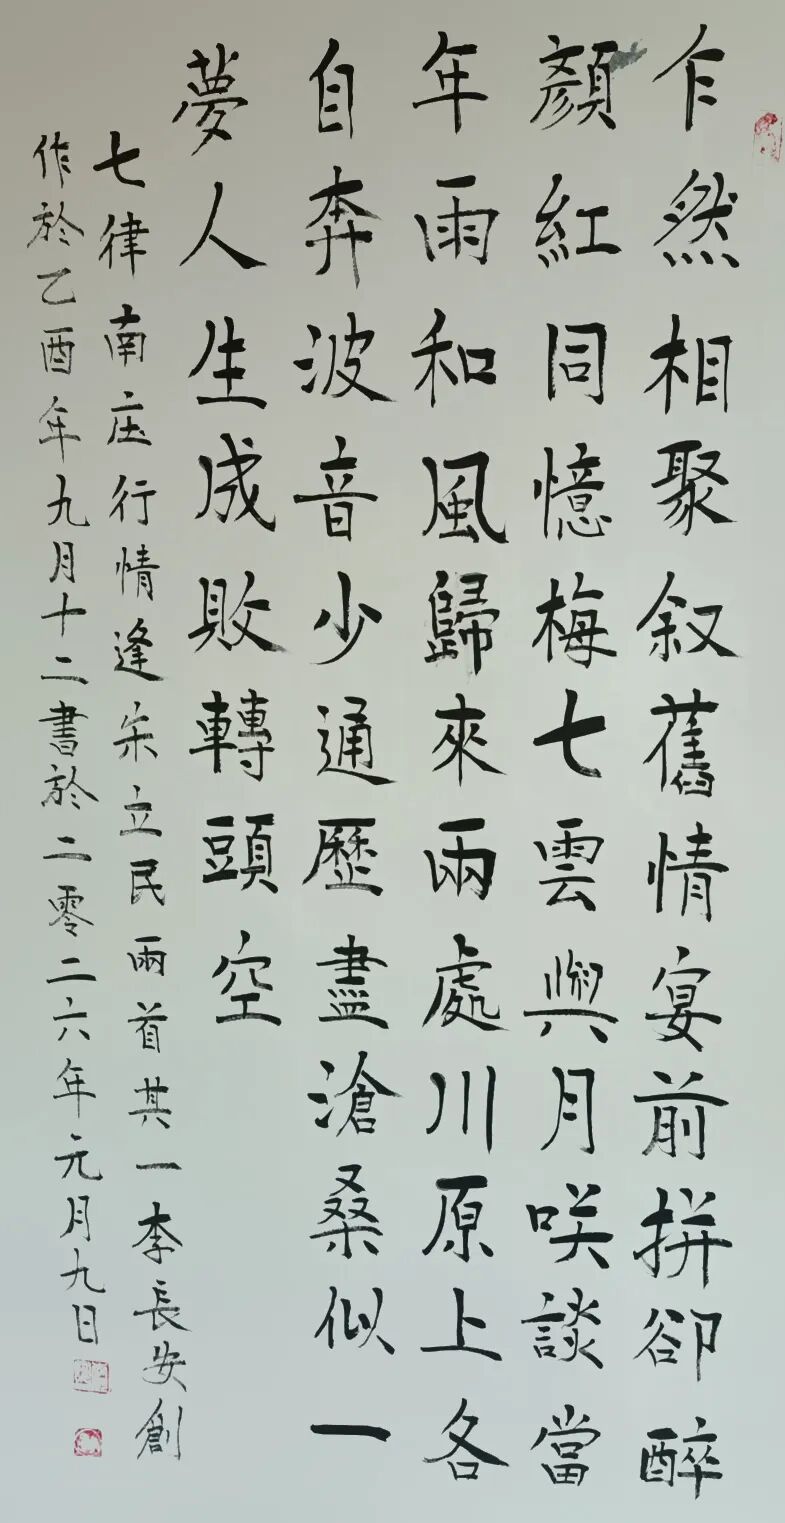 乍然相聚叙舊情宴前拼卻醉
顏紅同憶梅七雲與月咲談當
年雨和風歸來兩處川原上各
自奔波音少通歷盡滄桑似一
夢人生成敗轉頭空
七律南庄行情逢朱立民兩首其一李長安創
作於乙酉年九月十二書於二零二六年元月九日